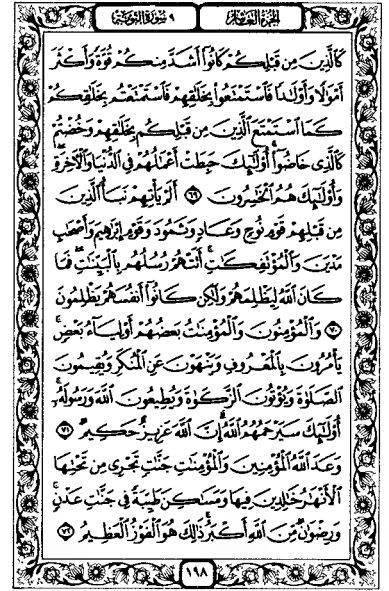 الجزء العاشر ٩ سورة التوبة
كَالَّذِينَ مِن قَبْلِكُمْ كَانُوٓا۟ أَشَدَّ مِنكُمْ قُوَّةً وَأَكْثَرَ
أَمْوَٰلًا وَأَوْلَـٰدًا فَٱسْتَمْتَعُوا۟ بِخَلَـٰقِهِمْ فَٱسْتَمْتَعْتُم بِخَلَـٰقِكُمْ
كَمَا ٱسْتَمْتَعَ ٱلَّذِينَ مِن قَبْلِكُم بِخَلَـٰقِهِمْ وَخُضْتُمْ
كَٱلَّذِى خَاضُوٓا۟ ۚ أُو۟لَـٰٓئِكَ حَبِطَتْ أَعْمَـٰلُهُمْ فِى ٱلدُّنْيَا وَٱلْـَٔاخِرَةِ ۖ
وَأُو۟لَـٰٓئِكَ هُمُ ٱلْخَـٰسِرُونَ ٦٩ أَلَمْ يَأْتِهِمْ نَبَأُ ٱلَّذِينَ
مِن قَبْلِهِمْ قَوْمِ نُوحٍ وَعَادٍ وَثَمُودَ وَقَوْمِ إِبْرَٰهِيمَ وَأَصْحَـٰبِ
مَدْيَنَ وَٱلْمُؤْتَفِكَـٰتِ ۚ أَتَتْهُمْ رُسُلُهُم بِٱلْبَيِّنَـٰتِ ۖ فَمَا
كَانَ ٱللَّهُ لِيَظْلِمَهُمْ وَلَـٰكِن كَانُوٓا۟ أَنفُسَهُمْ يَظْلِمُونَ
٧٠ وَٱلْمُؤْمِنُونَ وَٱلْمُؤْمِنَـٰتُ بَعْضُهُمْ أَوْلِيَآءُ بَعْضٍ ۚ
يَأْمُرُونَ بِٱلْمَعْرُوفِ وَيَنْهَوْنَ عَنِ ٱلْمُنكَرِ وَيُقِيمُونَ
ٱلصَّلَوٰةَ وَيُؤْتُونَ ٱلزَّكَوٰةَ وَيُطِيعُونَ ٱللَّهَ وَرَسُولَهُۥٓ ۚ
أُو۟لَـٰٓئِكَ سَيَرْحَمُهُمُ ٱللَّهُ ۗ إِنَّ ٱللَّهَ عَزِيزٌ حَكِيمٌ ٧١
وَعَدَ ٱللَّهُ ٱلْمُؤْمِنِينَ وَٱلْمُؤْمِنَـٰتِ جَنَّـٰتٍ تَجْرِى مِن تَحْتِهَا
ٱلْأَنْهَـٰرُ خَـٰلِدِينَ فِيهَا وَمَسَـٰكِنَ طَيِّبَةً فِى جَنَّـٰتِ عَدْنٍ ۚ
وَرِضْوَٰنٌ مِّنَ ٱللَّهِ أَكْبَرُ ۚ ذَٰلِكَ هُوَ ٱلْفَوْزُ ٱلْعَظِيمُ ٧٢
١٩٨